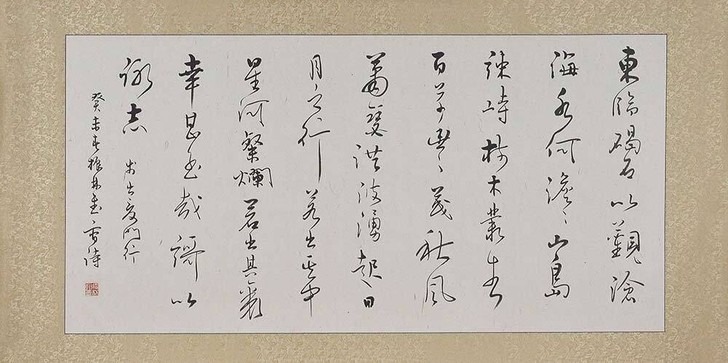 東臨碣石以觀滄
海水何澹〻山島
竦峙樹木叢生
百草豐茂秋風
蕭瑟洪波湧起日
月之行若出其中
星河粲爛若出其裏
幸甚至哉謌以
詠志 步出夏門行
癸未春